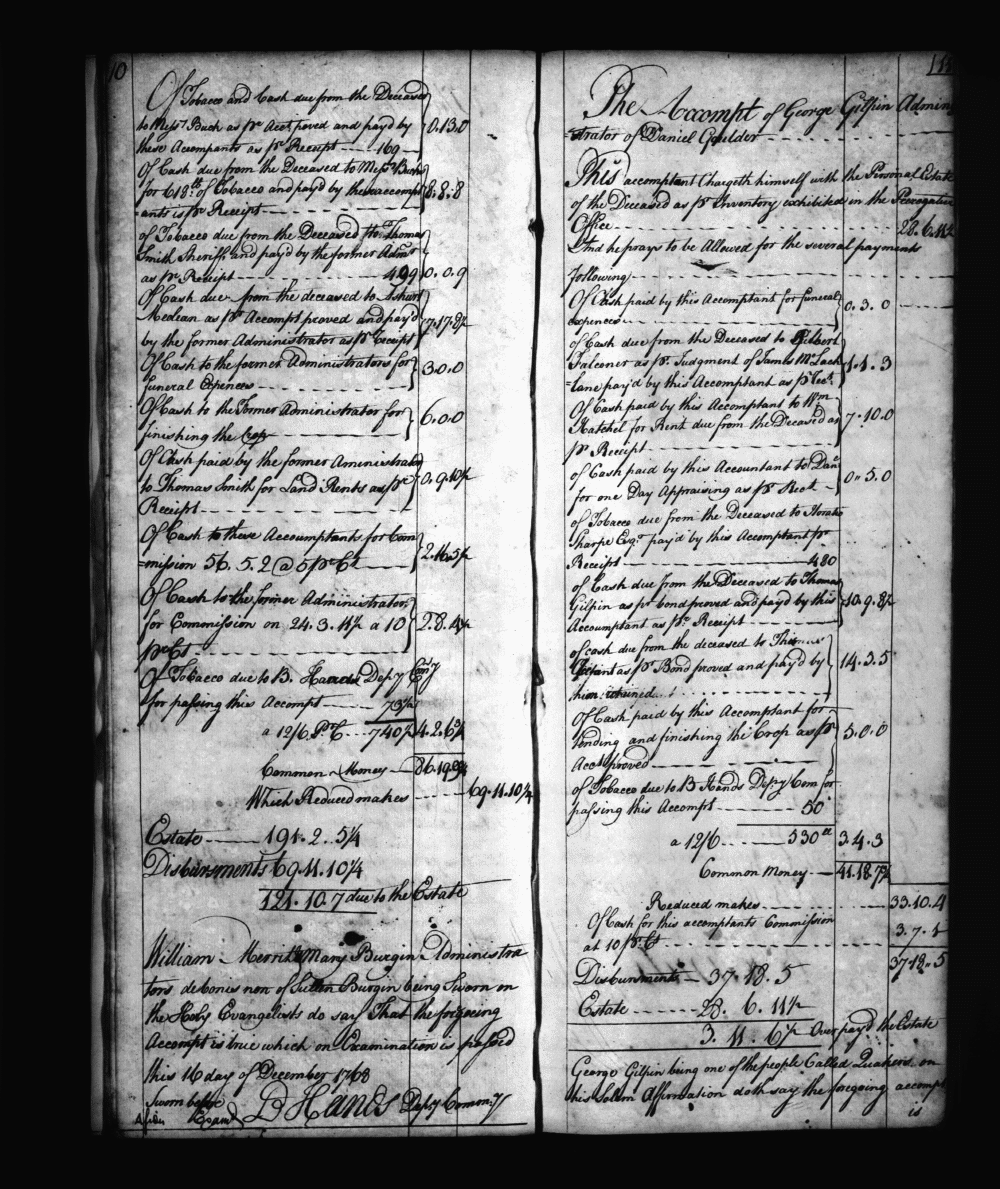 10
Of Tobacco and Cash due from the Deceased
to Messrs Buch as pr Acct proved and payd by 0.13.0
these Accompants as pr Receipt ---- 169
Of Cash due from the Deceased to Messrs
for 618 lb of Tobacco and payd by these accompt 8.8.8
ants is pr Receipt
of Tobacco due from the Deceased to Thomas
Smith Sheriff and payd by the former Admr
as pr Receipt ---- 499 0.0.9
Of Cash due from the deceased to
Median as pr Accompt proved and payd
by the former Administrator as pr Receipt
Of Cash to the former Administrators for 3.0.0
funeral Expences
Of Cash to the Former Administrator for 6.0.0
finishing the Crop
Of Cash paid by the former Aministrator
to Thomas Smith for Land Rents as pr 0.9.10½
Receipt
Of Cash to these Accompants for Com
=mission 56.5.2 @ 5 pr Ct
Of Cash to the former Administrator
for Commission on 24.3.11½ a 10 2.8.4½
pr Ct
Of Tobacco due to B. Hands Depy Comy
for passing this Accompt ---- 73½
a 12/6 P C ---- 740½ 4.2.6¾
Common Money
Which Reduced makes ---- 69.11.10¼
Estate ---- 191.2.5¼
Disbursments 69.11.10¼
121.10.7 due to the Estate
William Merritt Mary Burgin Administra
tors debonis non of Sutton Burgin being Sworn on
the Holy Evangelists do say That the foregoing
Accompt is true which on Examination is passed
this 16 day of December 1768
Sworn before B Hands Depy Comonry
Examd
The Accompt of George Gilpin Admin
strator of Daniel Goulder
This accomptant Chargeth himself with the Personal Estate
of the Deceased as pr Inventory exhibited in the Perogative
Office ---- 28.6.11½
And he prays to be Allowed for the several payments
following
Of Cash paid by this Accomptant for funeral 0.3.0
expences
of Cash due from the Deceased to Gilbert
Falconer as pr Judgment of James McLach 1.1.3
=lane pay'd by this Accomptant as pr Rect
Of Cash paid by this Accomptant to Wm
Hatchel for Rent due from the Deceased as 7.10.0
pr Receipt
of Cash paid by this Accountant to Danl
for one Day Appraising as pr Rect 0.5.0
of Tobacco due from the Deceased to Horatio
Sharpe Esqr pay'd by this Accomptant pr
Receipt ---- 480
of Cash due from the Deceased to Thomas
Gilpin as pr bond proved and payd by this 10.9.8½
Accountant as pr Receipt
of cash due from the deceased to
as pr Bond proved and pay'd by 14.3.5
him
Of Cash paid by this Accomptant for
Tending and finishing the Crop as pr 3.0.0
Acct proved
of Tobacco due to B Hands Depy Com for
passing this Accompt ---- 50
a 12/6 ---- 530 3.4.3
Common Money ---- 41.18.7½
Reduced makes ---- 33.10.4
Of Cash for this accomptants Commission
at 10 pr Ct 3.7.1
37.18.5
Disbursments ---- 37.18.5
Estate ---- 28.6.11½
3.11.6½ Over pay'd the Estate
George Gilpin being one of the people Called Quakers on
his Solem Affirmation doth say the foregoing accompt
is